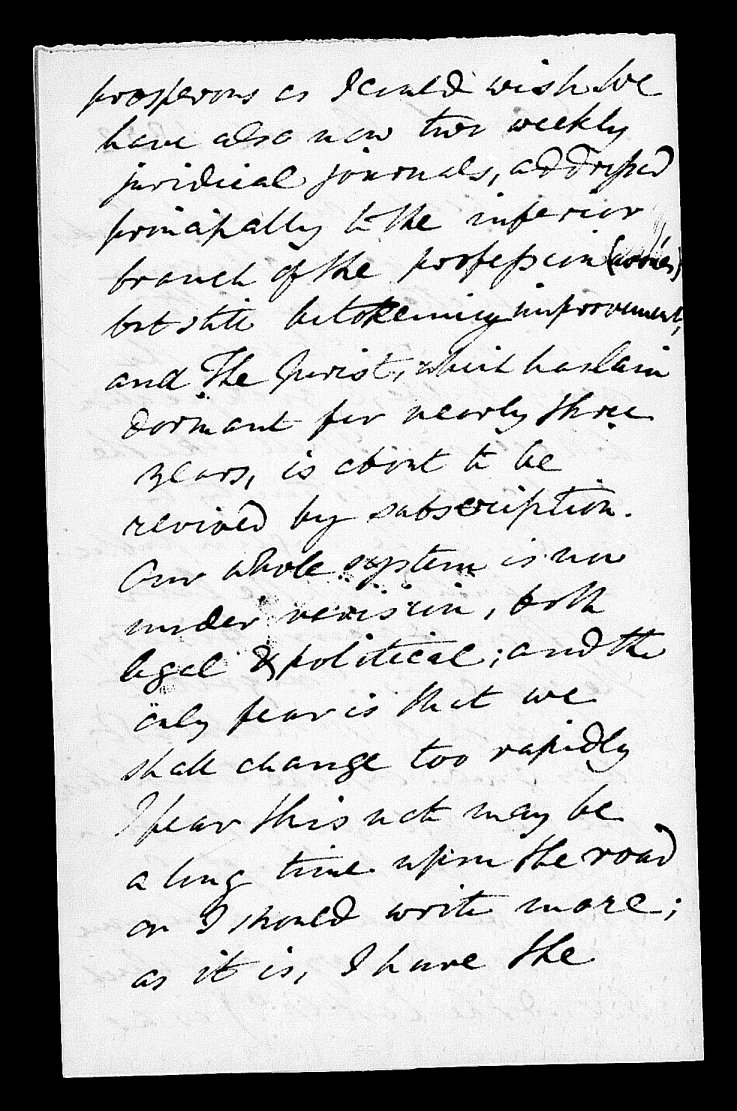 prosperous as I could wish. We
have also now two weekly
juridical journals, addressed
principally to the inferior
branch of the profession
but still betokening improvement,
and The Jurist, which has lain
dormant for nearly three
years, is about to be
revived by subscription.
Our whole system is now
under revision, both
legal & political; and the
only fear is that we
shall change too rapidly
I fear this note may be
a long time upon the road
or I should write more;
as it is, I have the